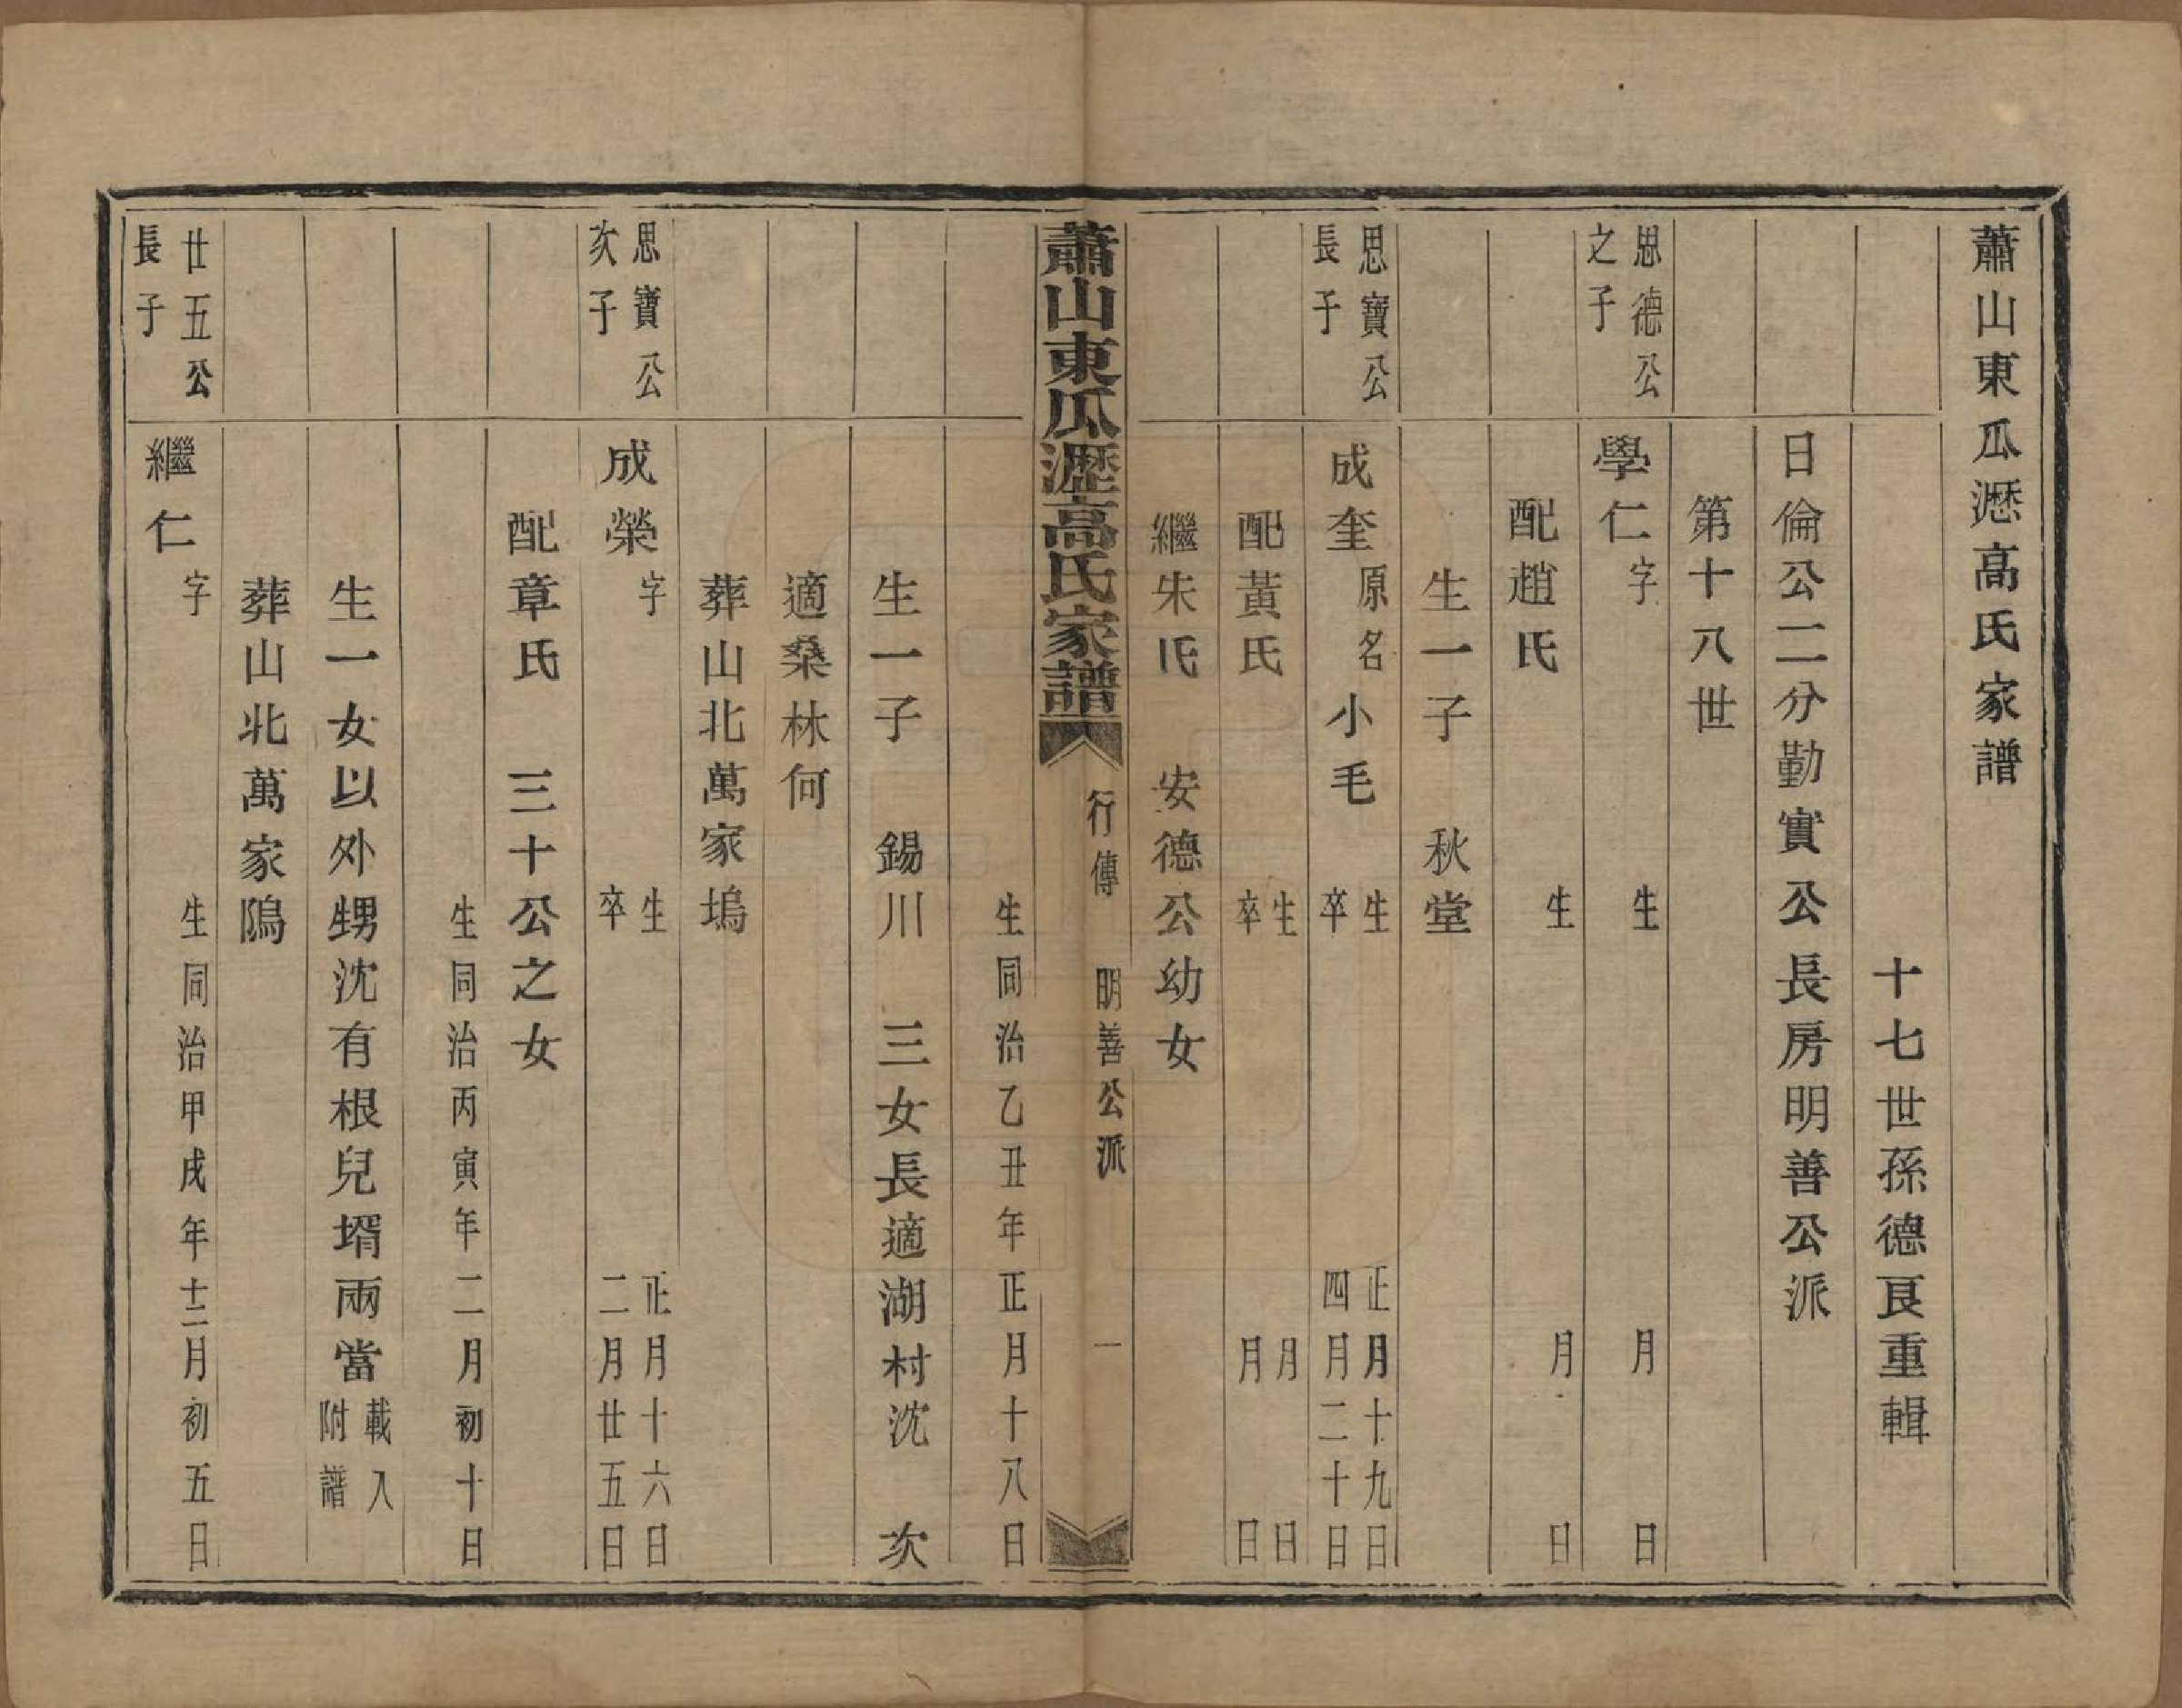 蕭山東瓜瀝高氏家譜
十七世孫德良重輯
日倫公二分勤實公長房明善公派
第十八世
思德公之子
學仁字 生 月 日
配趙氏 生 月 日
生一子 秋堂
思寶公長子
成奎原名小毛 生 正月十九日
卒 四月二十日
配黃氏 生 月 日
卒 月 日
繼朱氏 安德公幼女
蕭山東瓜瀝高氏家譜 行傳 明善公派 一
生同治乙丑年正月十八日
生一子 錫川 三女長適湖村沈 次
適桑林何
葬山北萬家塢
思寶公次子
成榮字 生 正月十六日
卒 二月廿五日
配章氏 三十公之女
生同治丙寅年二月初十日
生一女以外甥沈有根兒壻兩當載入附譜
葬山北萬家隖
廿五公長子
繼仁字 生同治甲戌年十二月初五日